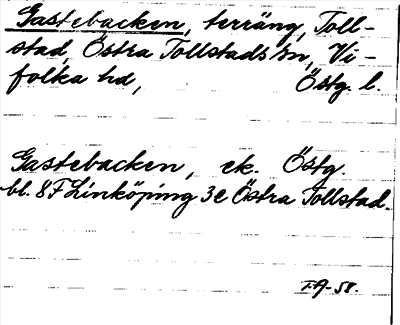 Gastebacken, terräng, Toll-
stad, Östra Tollstads sn, Vi-
folka hd, Östg. l.
Gastebacken, ek. Östg.
bl. 8F Linköping 3e Östra Tollstad.
T.A-58.